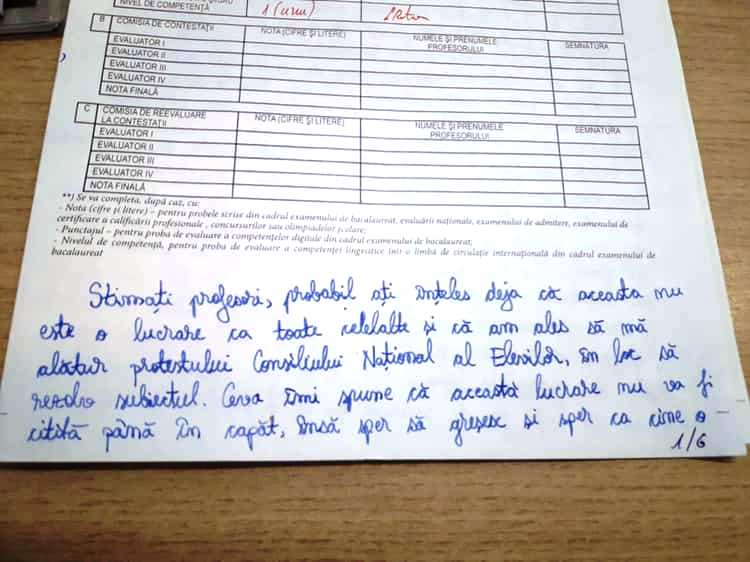 NIVEL DE COMPETENȚĂ 1 (unu)
B COMISIA DE CONTESTAȚII NOTA (CIFRE ȘI LITERE) NUMELE ȘI PRENUMELE PROFESORULUI SEMNATURA
EVALUATOR I
EVALUATOR II
EVALUATOR III
EVALUATOR IV
NOTA FINALĂ
C COMISIA DE REEVALUARE LA CONTESTAȚII NOTA (CIFRE ȘI LITERE) NUMELE ȘI PRENUMELE PROFESORULUI SEMNATURA
EVALUATOR I
EVALUATOR II
EVALUATOR III
EVALUATOR IV
NOTA FINALĂ
**) Se va completa, după caz, cu:
- Nota (cifre și litere) – pentru probele scrise din cadrul examenului de bacalaureat, evaluării naționale, examenului de admitere, examenului de
certificare a calificării profesionale , concursurilor sau olimpiadelor școlare;
- Punctajul – pentru proba de evaluare a competențelor digitale din cadrul examenului de bacalaureat;
- Nivelul de competență, pentru proba de evaluare a competenței lingvistice într-o limbă de circulație internațională din cadrul examenului de
bacalaureat
Stimați profesori, probabil ați înțeles deja că aceasta nu
este o lucrare ca toate celelalte și că am ales să mă
alătur protestului Consiliului Național al Elevilor, în loc să
rezolv subiectul. Ceva îmi spune că această lucrare nu va fi
citită până în capăt, însă sper să greșesc și sper ca cine o
1/6